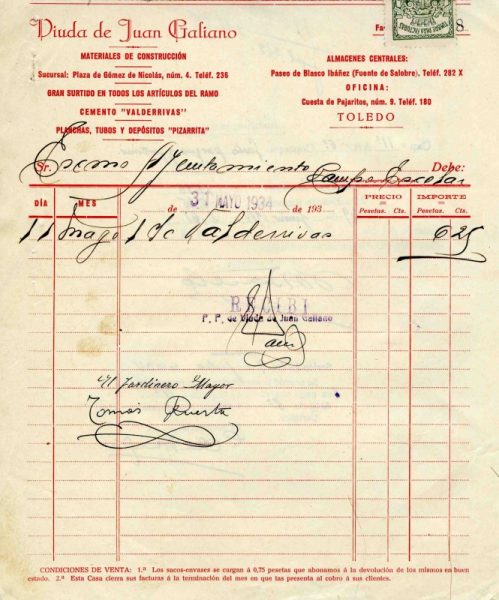 Viuda de Juan Galiano
8
MATERIALES DE CONSTRUCCIÓN
Sucursal: Plaza de Gómez de Nicolás, núm. 4. Teléf. 236
GRAN SURTIDO EN TODOS LOS ARTÍCULOS DEL RAMO
CEMENTO "VALDERRIVAS"
PLANCHAS, TUBOS Y DEPÓSITOS "PIZARRITA"
ALMACENES CENTRALES:
Paseo de Blasco Ibáñez (Fuente de Salobre). Teléf. 282 X
OFICINA:
Cuesta de Pajaritos, núm. 9. Teléf. 180
TOLEDO
Sr. Excmo Ayuntamiento Campo Escolar Debe:
31 MAYO 1934
de de 193
DÍA MES PRECIO IMPORTE
Pesetas. Cts. Pesetas. Cts.
11 Mayo 1 Sc Valderrivas 6 25
RECIBI
P. P. de Viuda de Juan Galiano
El Jardinero Mayor
Tomás Puerta
CONDICIONES DE VENTA: 1.ª Los sacos-envases se cargan á 0,75 pesetas que abonamos á la devolución de los mismos en buen
estado. 2.ª Esta Casa cierra sus facturas á la terminación del mes en que las presenta al cobro á sus clientes.